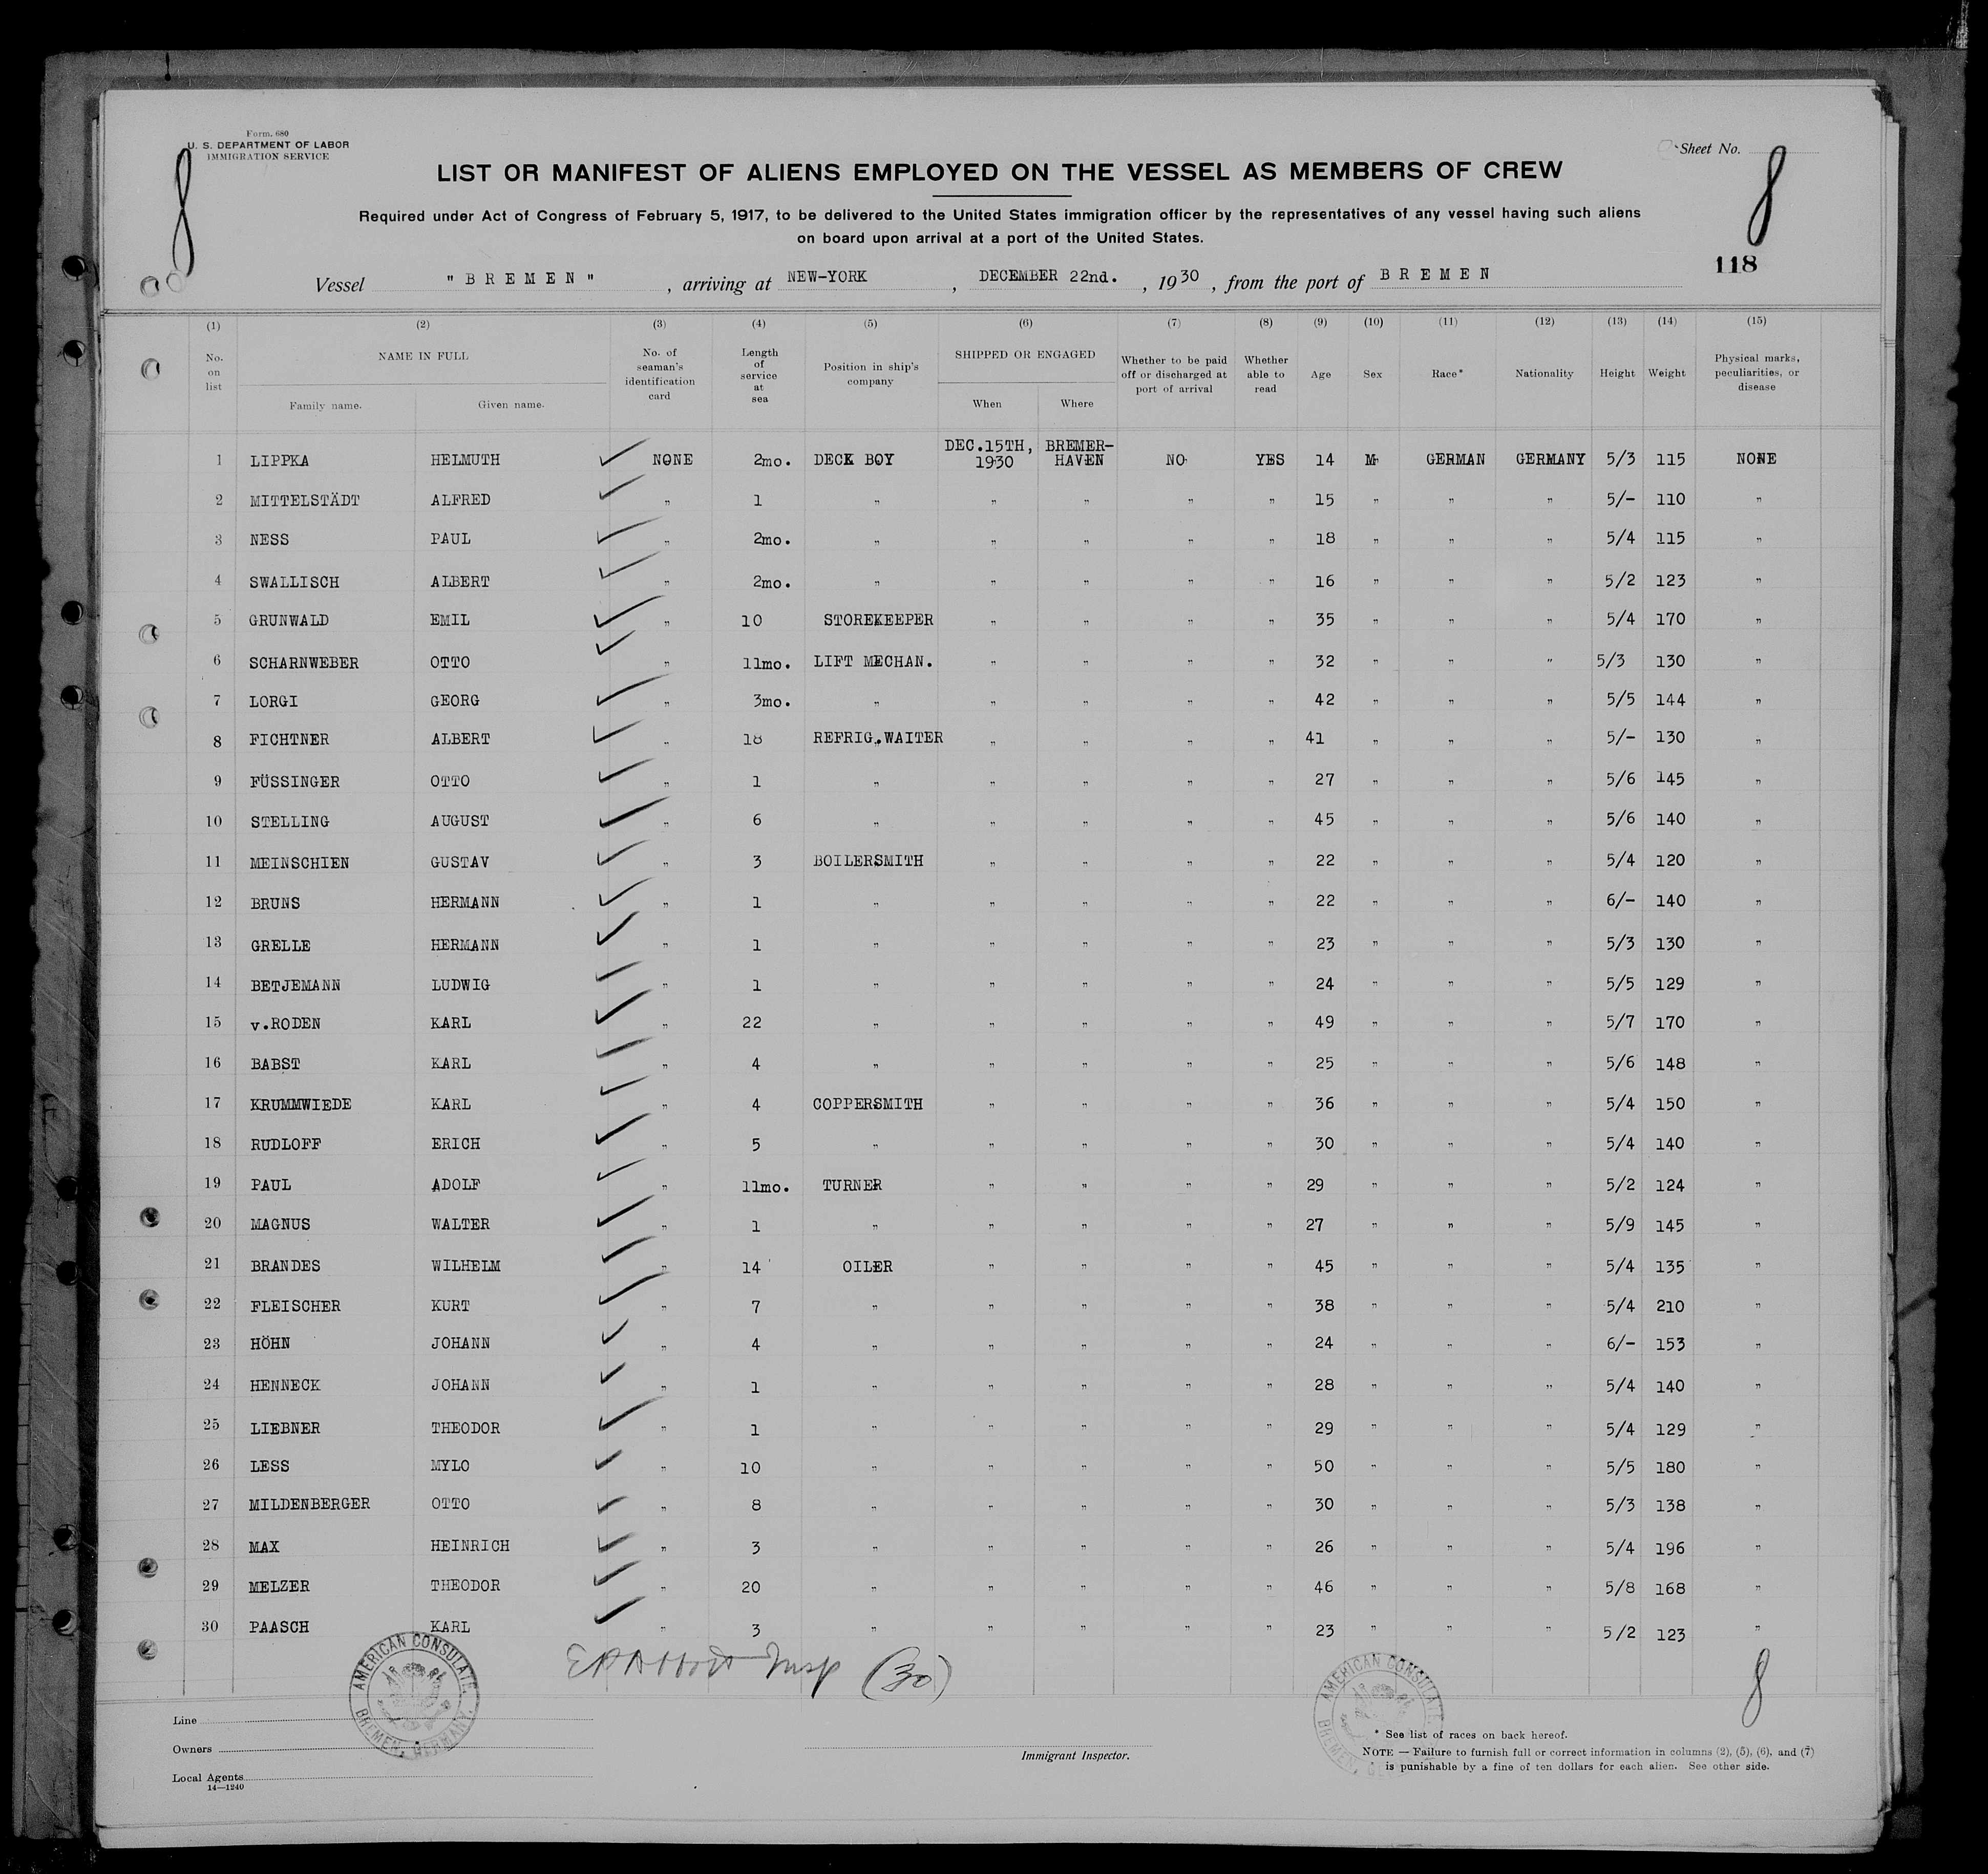 Form. 680
U. S. DEPARTMENT OF LABOR
IMMIGRATION SERVICE
Sheet No. 8
8
LIST OR MANIFEST OF ALIENS EMPLOYED ON THE VESSEL AS MEMBERS OF CREW
Required under Act of Congress of February 5, 1917, to be delivered to the United States immigration officer by the representatives of any vessel having such aliens
on board upon arrival at a port of the United States.
118
Vessel "BREMEN", arriving at NEW-YORK, DECEMBER 22nd., 1930, from the port of BREMEN
(1) (2) (3) (4) (5) (6) (7) (8) (9) (10) (11) (12) (13) (14) (15)
No. on list NAME IN FULL Family name. Given name. No. of seaman's identification card Length of service at sea Position in ship's company SHIPPED OR ENGAGED When Where Whether to be paid off or discharged at port of arrival Whether able to read Age Sex Race* Nationality Height Weight Physical marks, peculiarities, or disease
1 LIPPKA HELMUTH NONE 2mo. DECK BOY DEC.15TH, 1930 BREMER-HAVEN NO YES 14 M GERMAN GERMANY 5/3 115 NONE
2 MITTELSTÄDT ALFRED " 1 " " " " " 15 " " " 5/- 110 "
3 NESS PAUL " 2mo. " " " " " 18 " " " 5/4 115 "
4 SWALLISCH ALBERT " 2mo. " " " " " 16 " " " 5/2 123 "
5 GRUNWALD EMIL " 10 STOREKEEPER " " " " 35 " " " 5/4 170 "
6 SCHARNWEBER OTTO " 11mo. LIFT MECHAN. " " " " 32 " " " 5/3 130 "
7 LORGI GEORG " 3mo. " " " " " 42 " " " 5/5 144 "
8 FICHTNER ALBERT " 18 REFRIG.WAITER " " " " 41 " " " 5/- 130 "
9 FÜSSINGER OTTO " 1 " " " " " 27 " " " 5/6 145 "
10 STELLING AUGUST " 6 " " " " " 45 " " " 5/6 140 "
11 MEINSCHIEN GUSTAV " 3 BOILERSMITH " " " " 22 " " " 5/4 120 "
12 BRUNS HERMANN " 1 " " " " " 22 " " " 6/- 140 "
13 GRELLE HERMANN " 1 " " " " " 23 " " " 5/3 130 "
14 BETJEMANN LUDWIG " 1 " " " " " 24 " " " 5/5 129 "
15 v.RODEN KARL " 22 " " " " " 49 " " " 5/7 170 "
16 BABST KARL " 4 " " " " " 25 " " " 5/6 148 "
17 KRUMMWIEDE KARL " 4 COPPERSMITH " " " " 36 " " " 5/4 150 "
18 RUDLOFF ERICH " 5 " " " " " 30 " " " 5/4 140 "
19 PAUL ADOLF " 11mo. TURNER " " " " 29 " " " 5/2 124 "
20 MAGNUS WALTER " 1 " " " " " 27 " " " 5/9 145 "
21 BRANDES WILHELM " 14 OILER " " " " 45 " " " 5/4 135 "
22 FLEISCHER KURT " 7 " " " " " 38 " " " 5/4 210 "
23 HÖHN JOHANN " 4 " " " " " 24 " " " 6/- 153 "
24 HENNECK JOHANN " 1 " " " " " 28 " " " 5/4 140 "
25 LIEBNER THEODOR " 1 " " " " " 29 " " " 5/4 129 "
26 LESS MYLO " 10 " " " " " 50 " " " 5/5 180 "
27 MILDENBERGER OTTO " 8 " " " " " 30 " " " 5/3 138 "
28 MAX HEINRICH " 3 " " " " " 26 " " " 5/4 196 "
29 MELZER THEODOR " 20 " " " " " 46 " " " 5/8 168 "
30 PAASCH KARL " 3 " " " " " 23 " " " 5/2 123 "
Insp (30)
8
AMERICAN CONSULATE, BREMEN, GERMANY.
AMERICAN CONSULATE, BREMEN,
Line
Owners
Local Agents
14—1240
Immigrant Inspector.
* See list of races on back hereof.
NOTE — Failure to furnish full or correct information in columns (2), (5), (6), and (7)
is punishable by a fine of ten dollars for each alien. See other side.